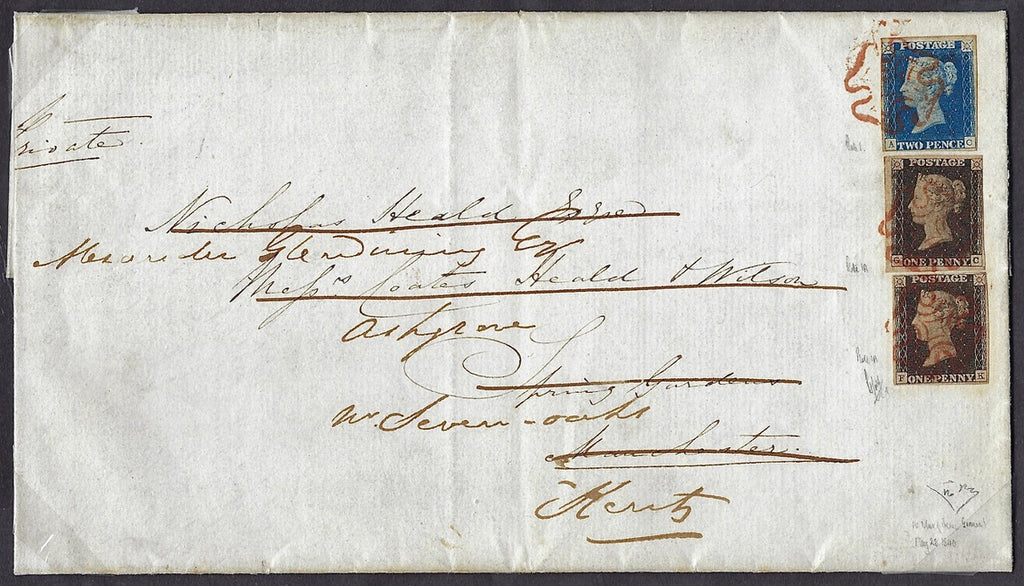 POSTAGE
A C
TWO PENCE
POSTAGE
G C
ONE PENNY
POSTAGE
F K
ONE PENNY
Private
Nicholas Heald Esqre
Alexander Glendining Esq
Messrs Coates Heald & Wilson
Ashgrove
Spring Gardens
Nr. Seven-oaks
Manchester.
Kent
May 28 1840